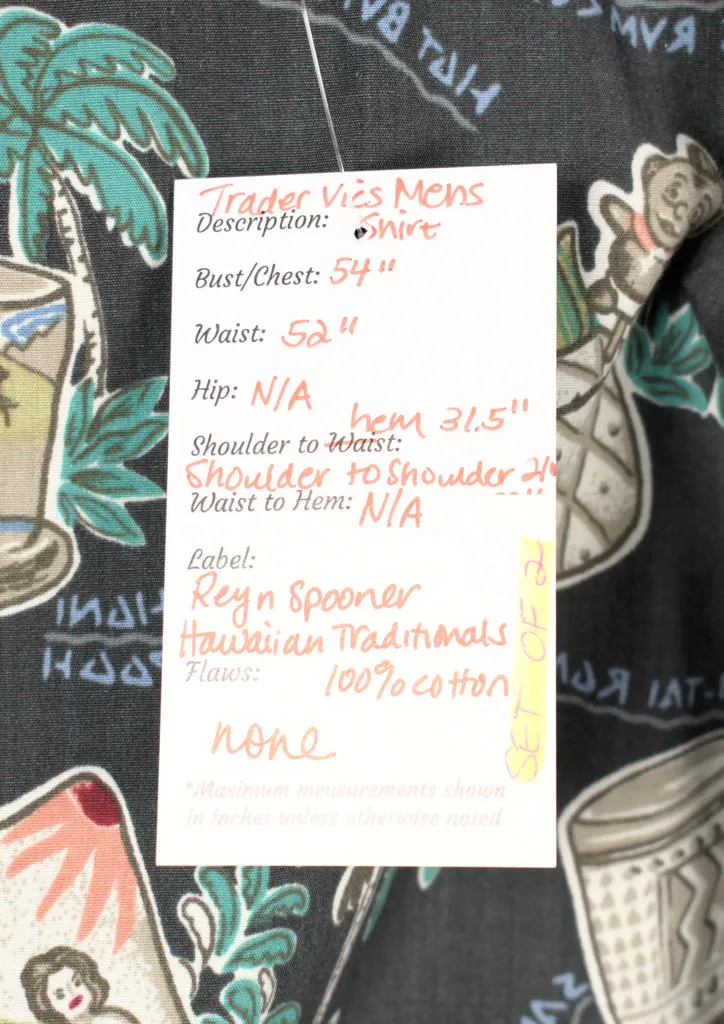 Trader Vics Mens
Description: Shirt
Bust/Chest: 54"
Waist: 52"
Hip: N/A
hem 31.5"
Shoulder to Waist:
Shoulder to Showlder
Waist to Hem: N/A
Label:
Reyn Spooner
Hawaiian Traditionals
Flaws: 100% cotton
none
SET OF 2
*Maximum measurements shown
in inches unless otherwise noted